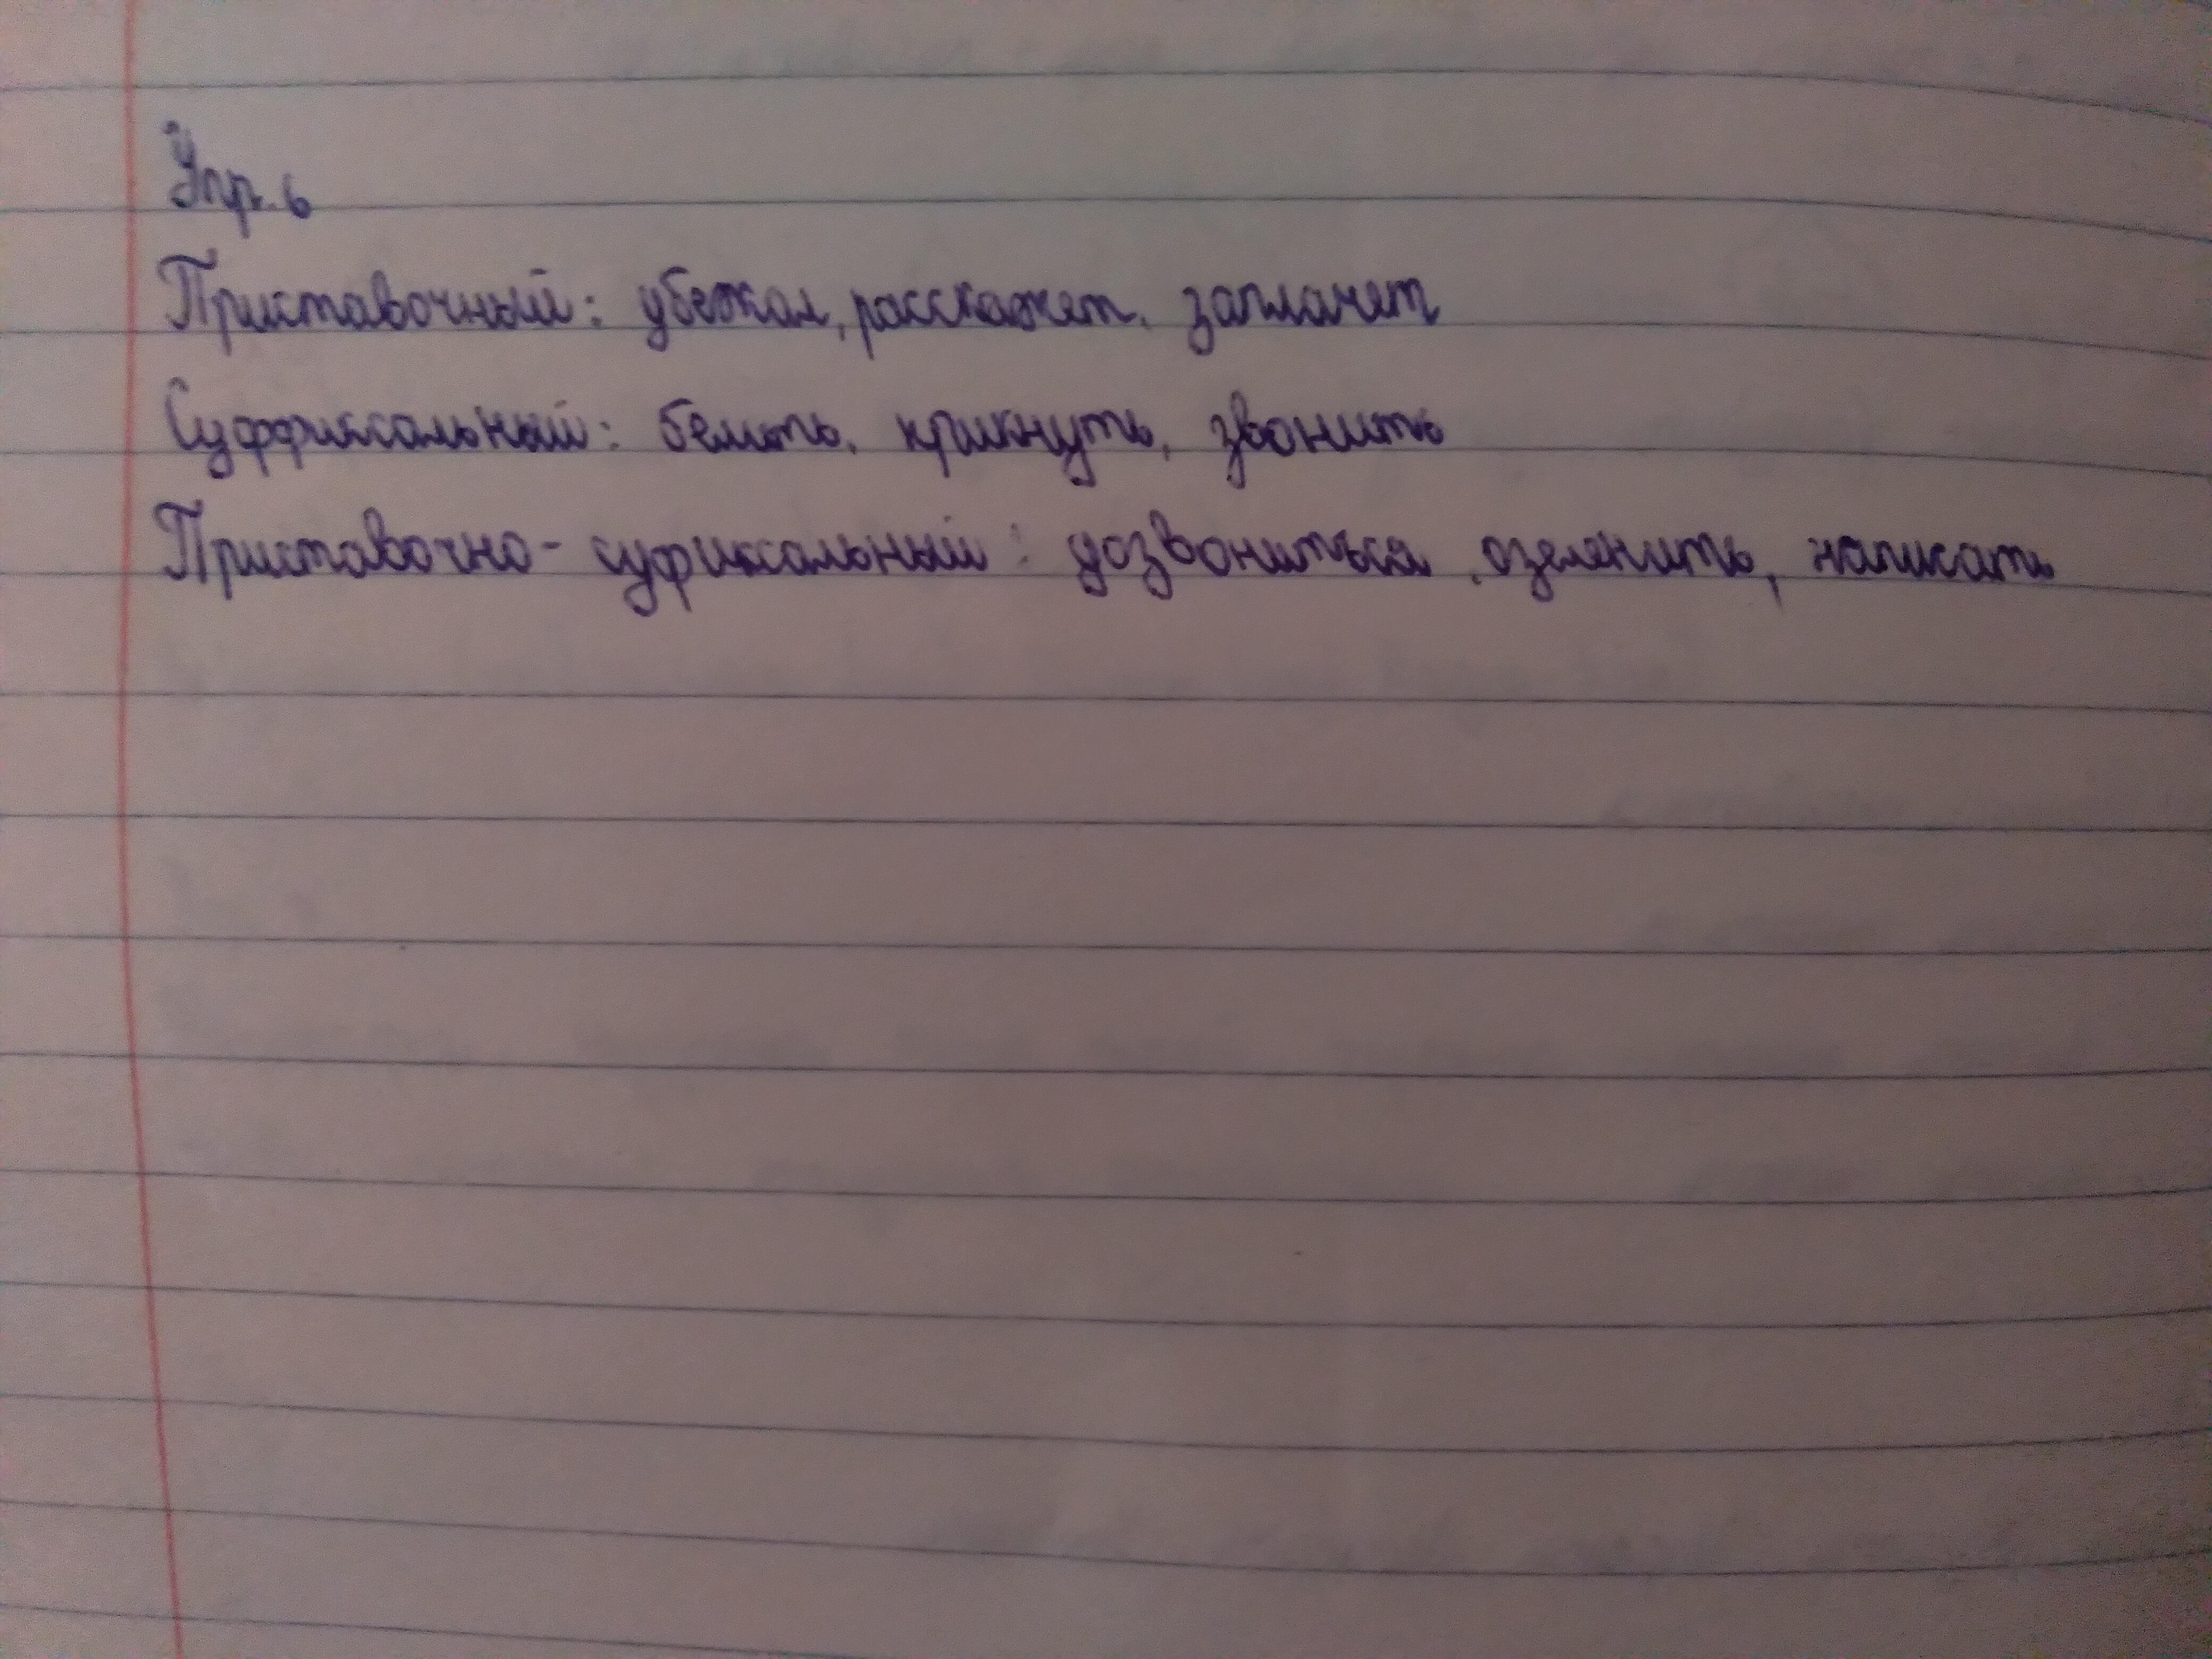 Упр. 6
Приставочный: убежал, расскажет, заплачет
Суффиксальный: белить, крикнуть, звонить
Приставочно-суфиксальный: дозвониться, озеленить, написать